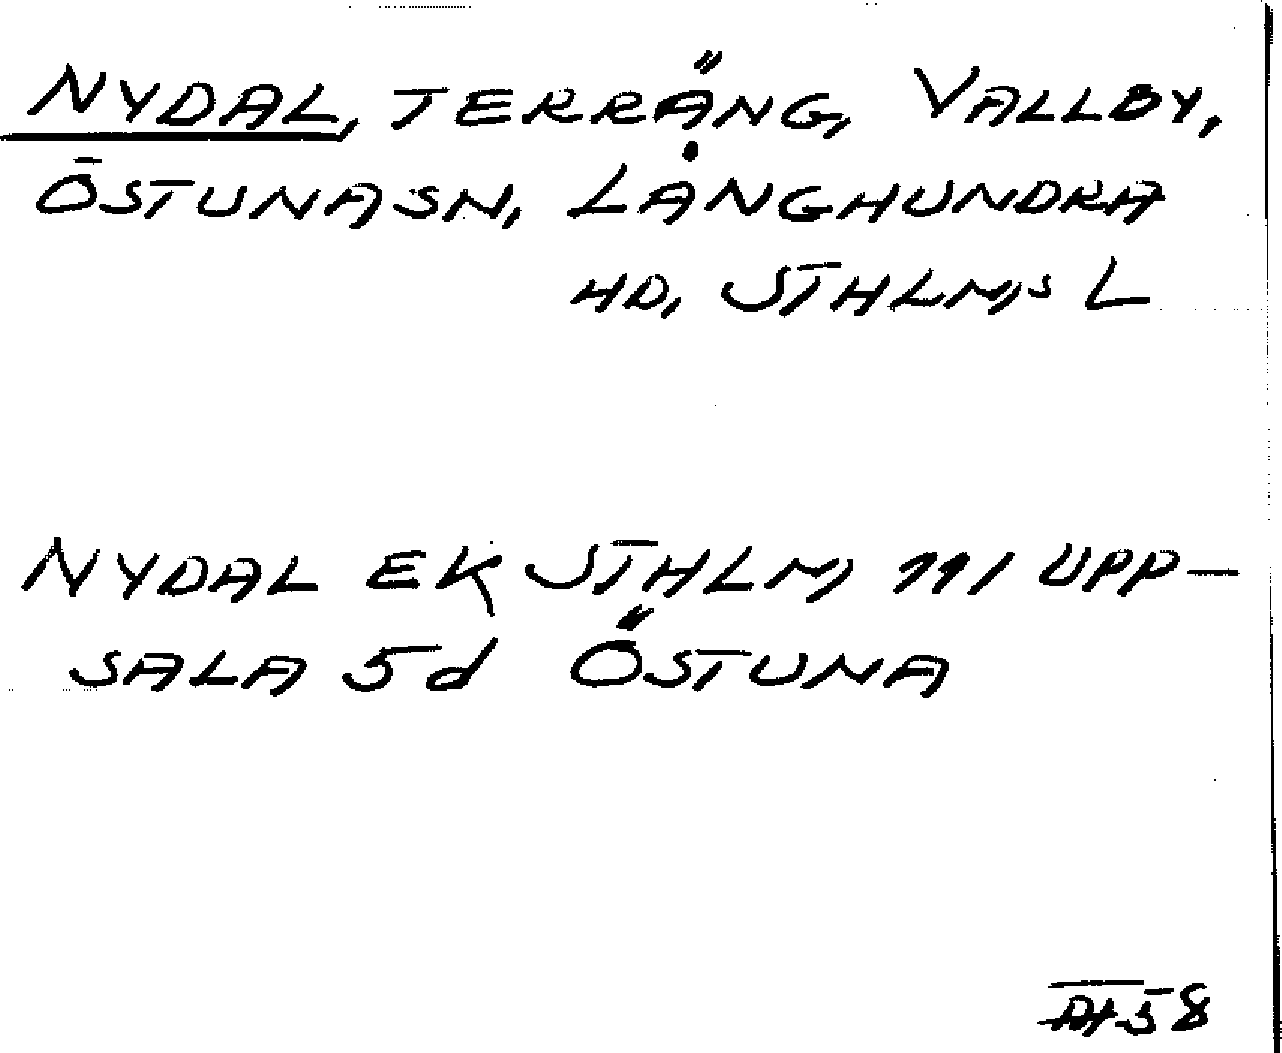 NYDAL, TERRÄNG, VALLBY,
ÖSTUNASN, LÅNGHUNDRA
HD, STHLM,S L
NYDAL EK STHLM, 111 UPP-
SALA 5d ÖSTUNA
58